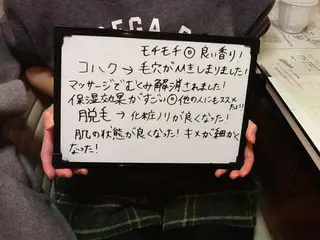 モチモチ◎良い香り!
コハク→毛穴が引きしまりました!
マッサージでむくみ解消されました!
保湿効果がすごい◎他の人にもススメたい!!
脱毛→化粧ノリが良くなった!
肌の状態が良くなった!キメが細かくなった!